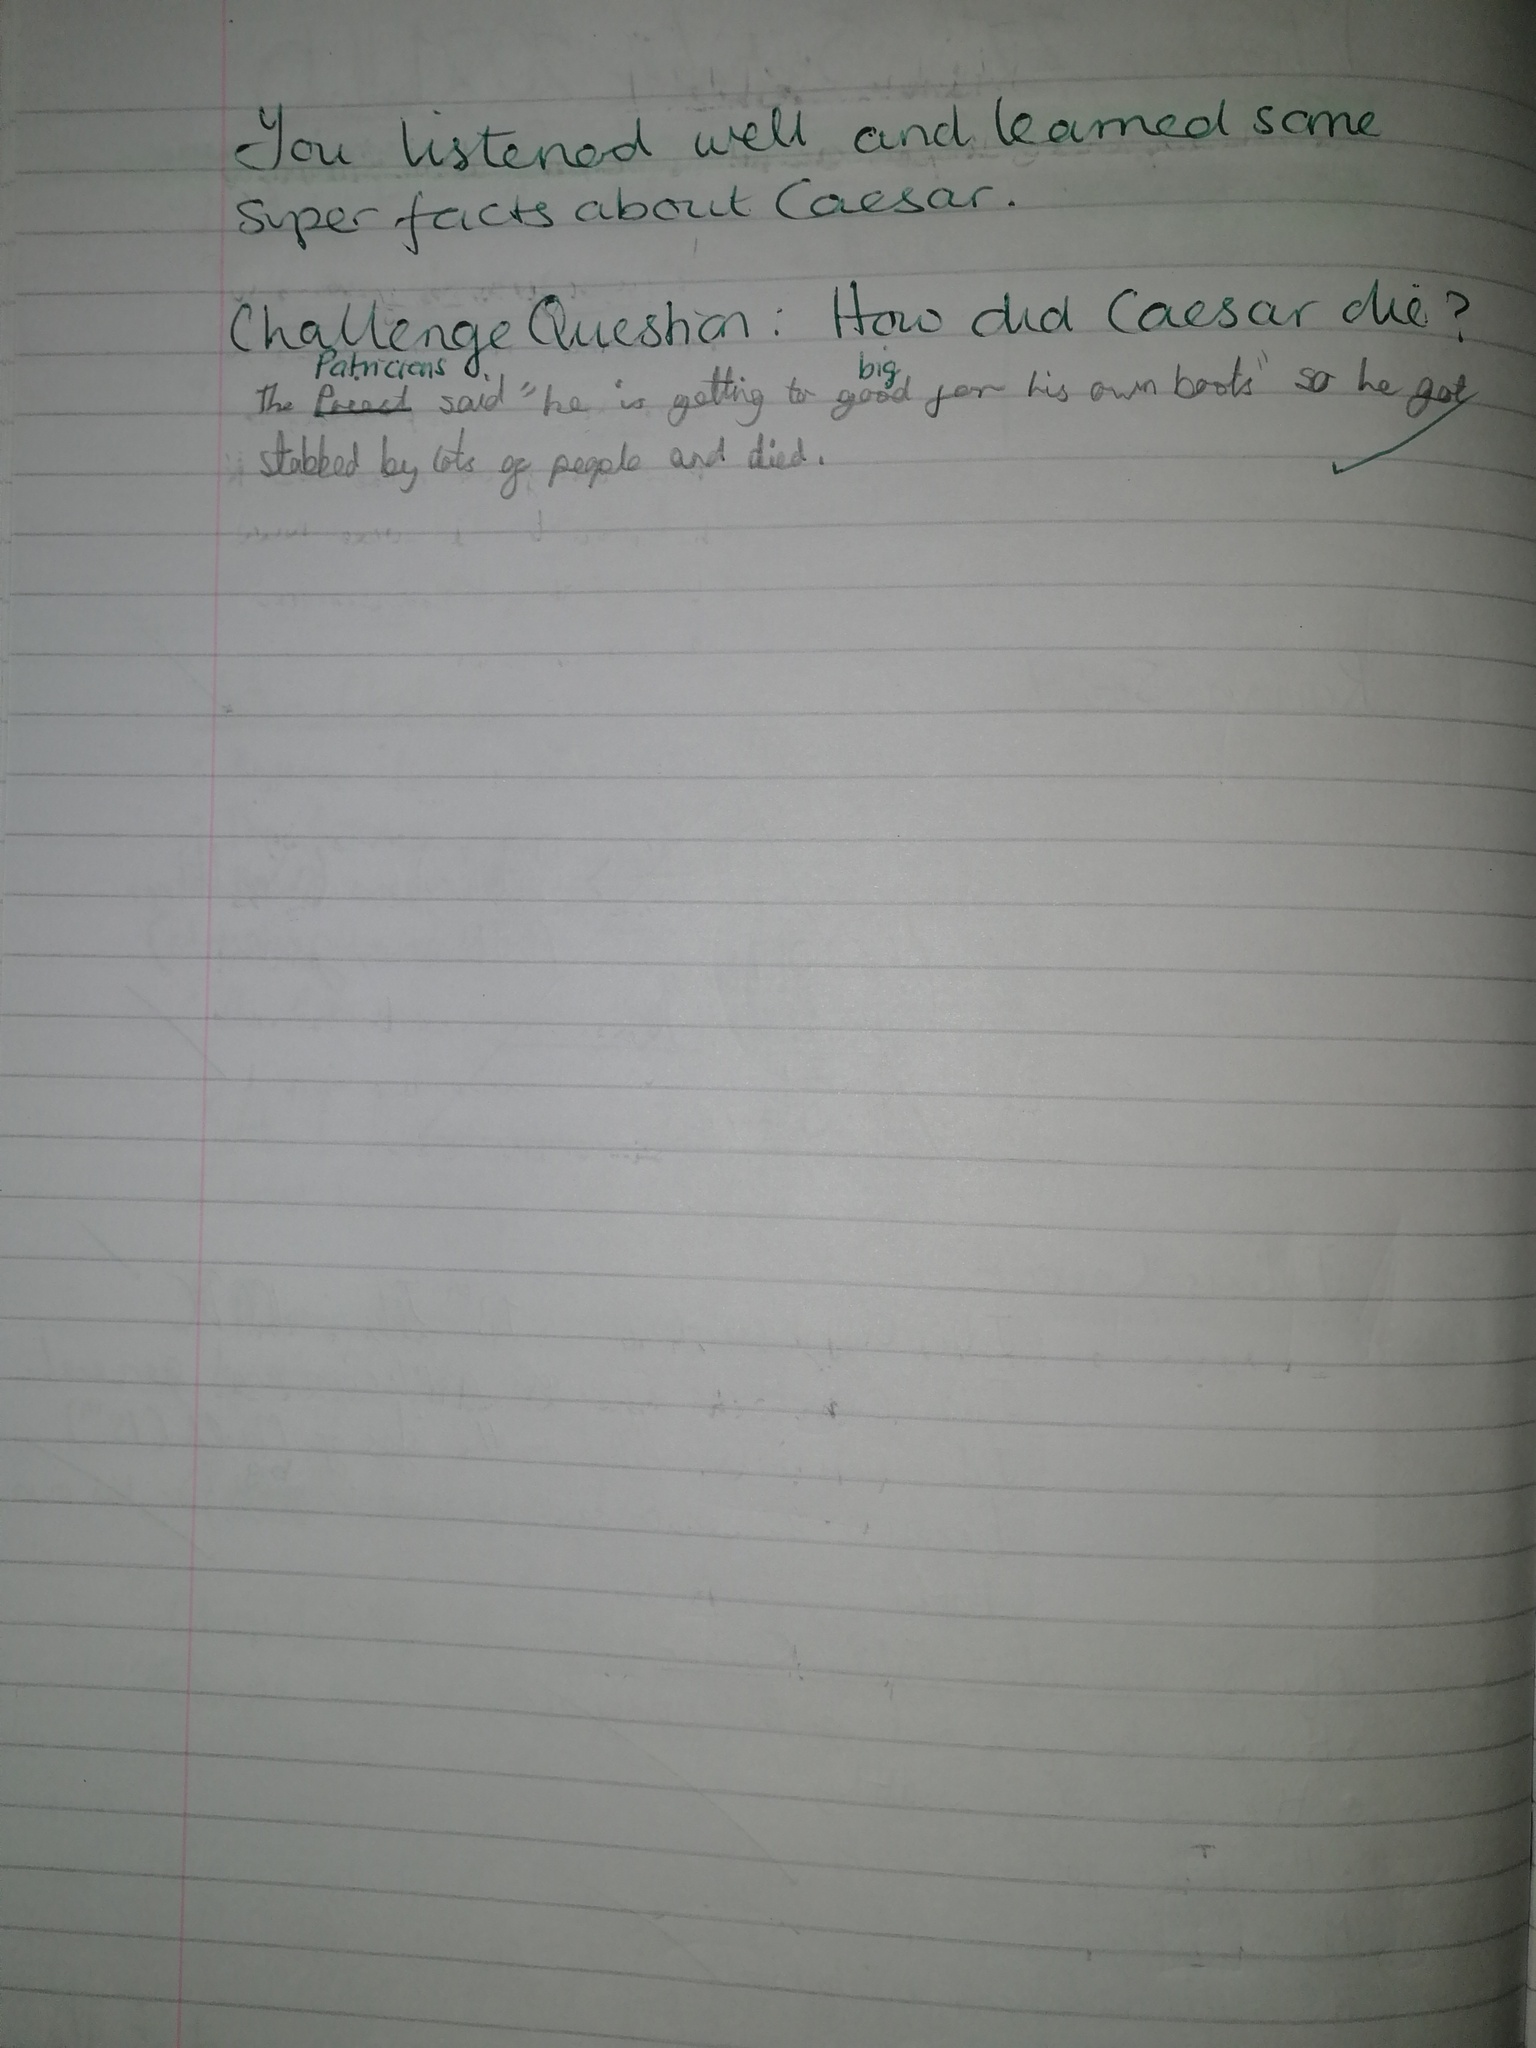 You listened well and learned some
super facts about Caesar.
Challenge Question: How did Caesar die?
Patricians big
The said "he is getting to good for his own boots" so he got
stabbed by lots of people and died.